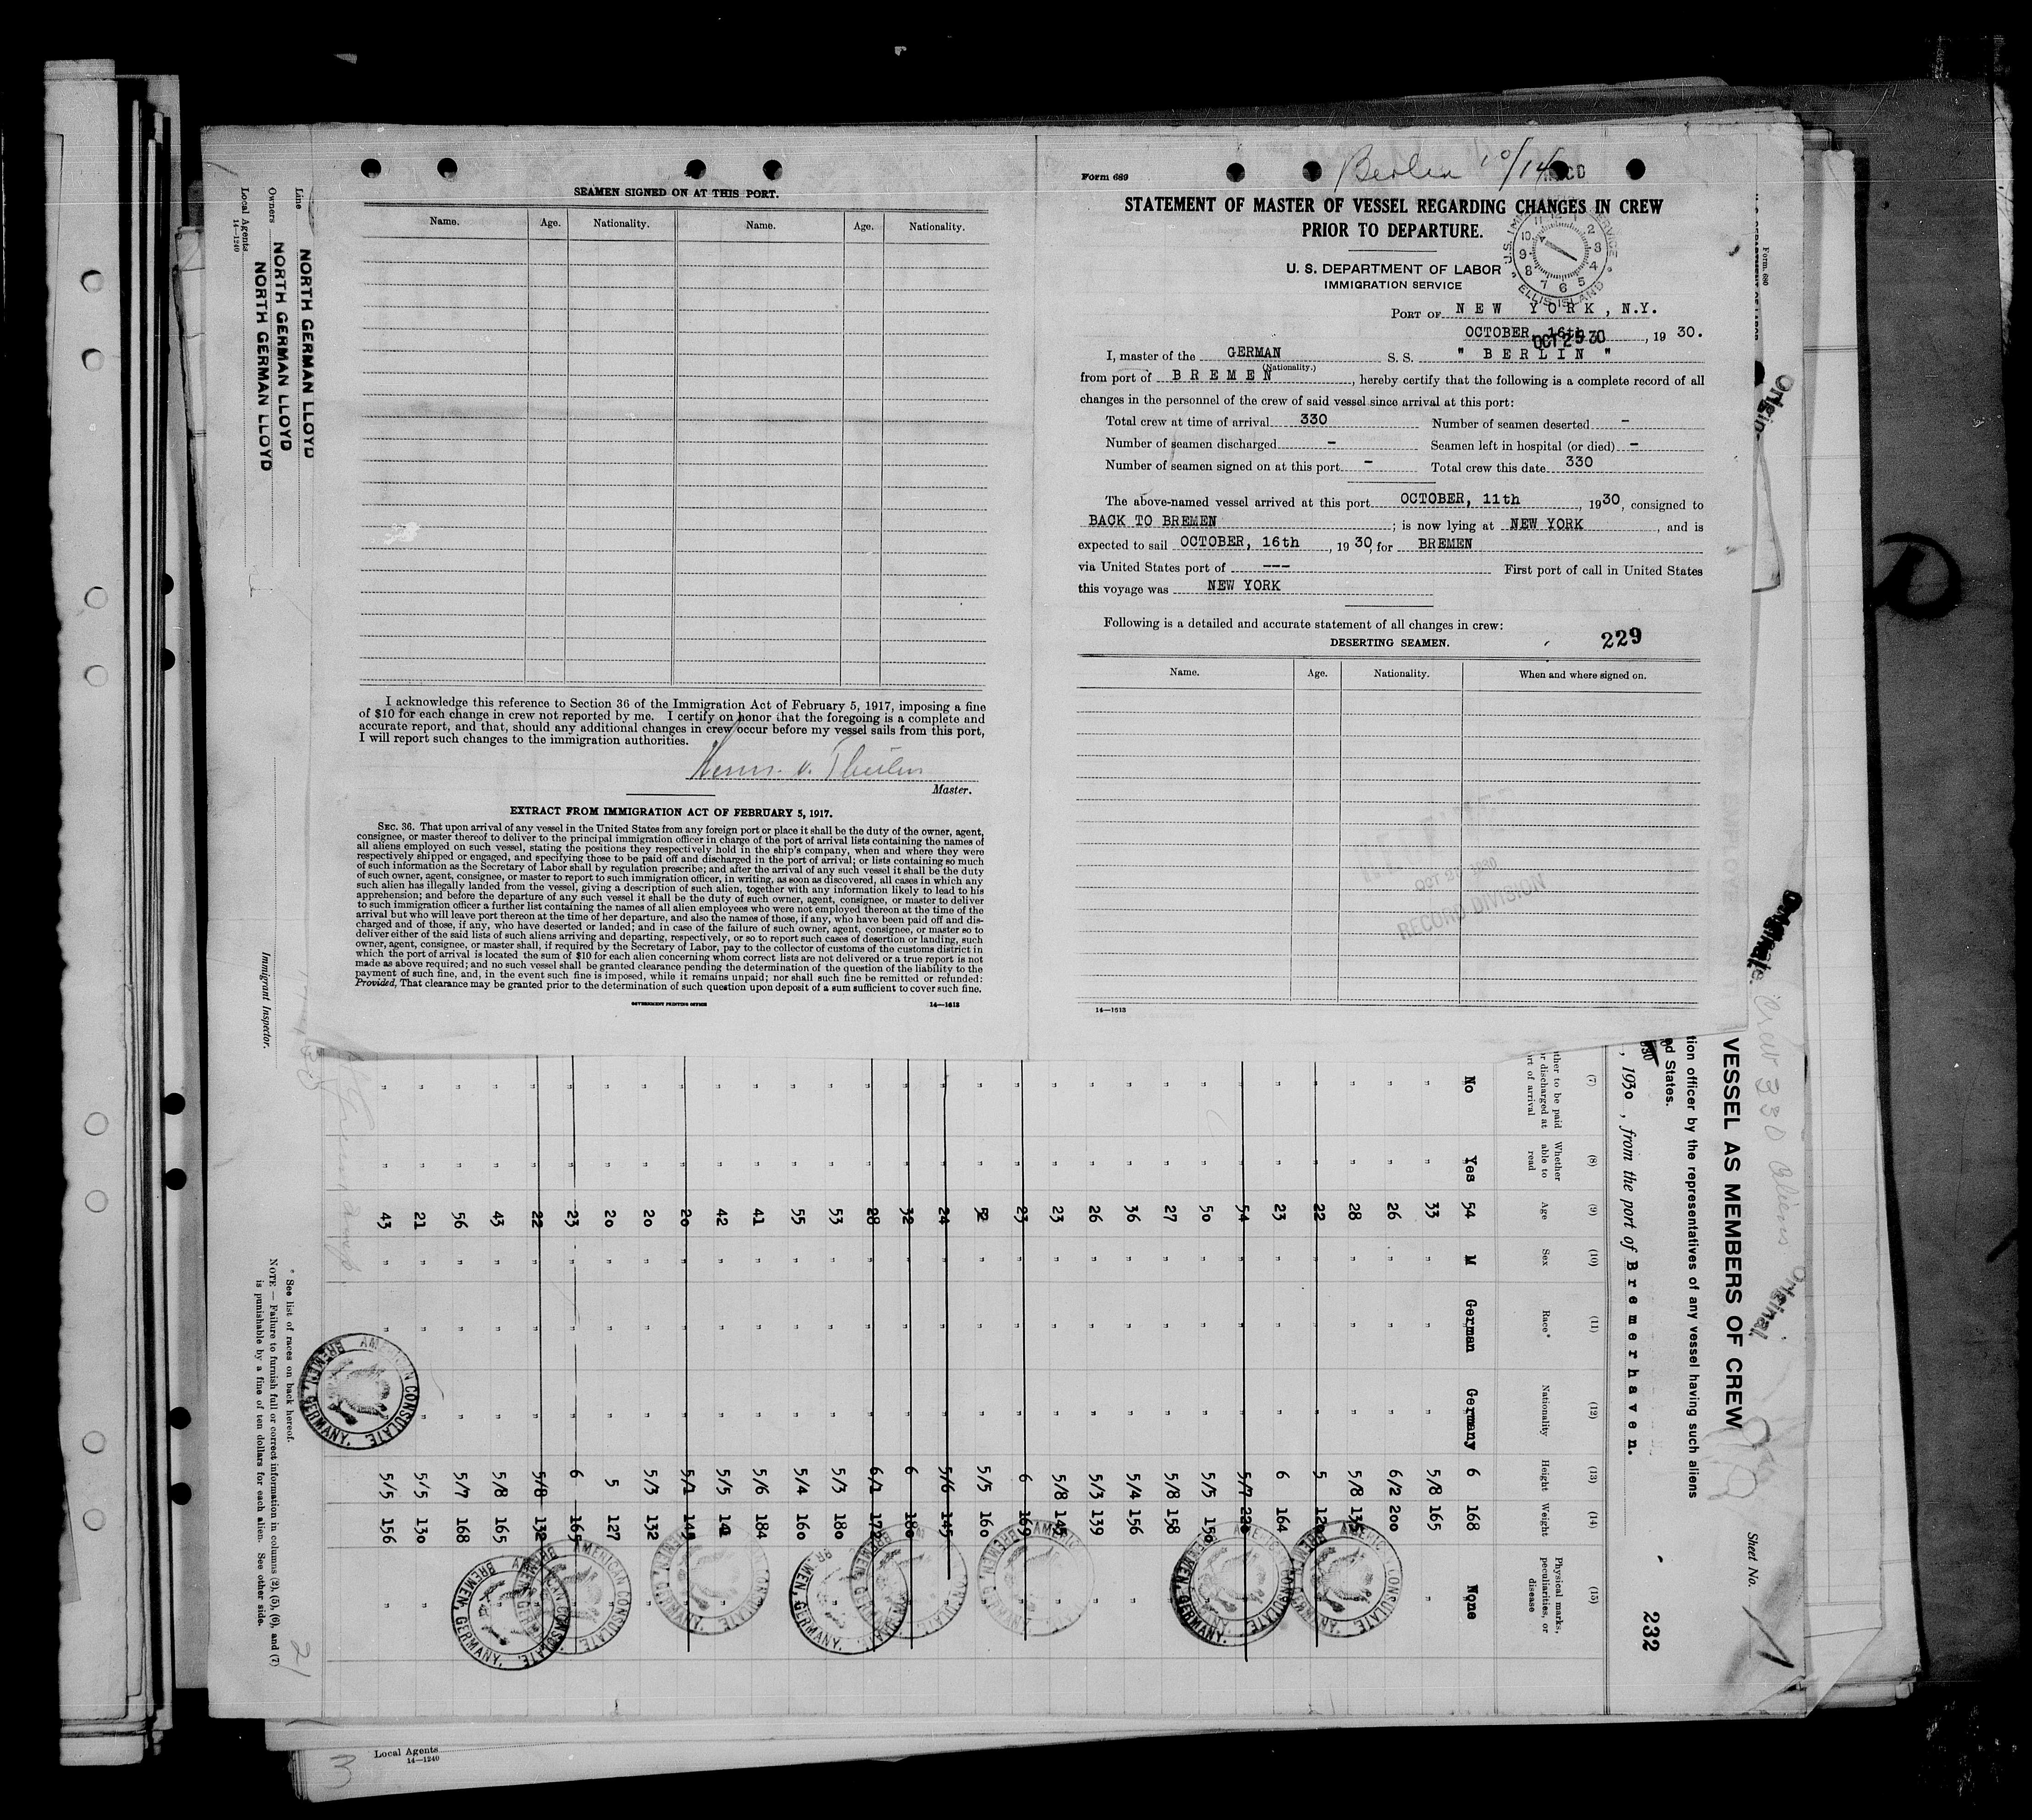 SEAMEN SIGNED ON AT THIS PORT.
Name. Age. Nationality. Name. Age. Nationality.
I acknowledge this reference to Section 36 of the Immigration Act of February 5, 1917, imposing a fine
of $10 for each change in crew not reported by me. I certify on honor that the foregoing is a complete and
accurate report, and that, should any additional changes in crew occur before my vessel sails from this port,
I will report such changes to the immigration authorities.
Master.
EXTRACT FROM IMMIGRATION ACT OF FEBRUARY 5, 1917.
SEC. 36. That upon arrival of any vessel in the United States from any foreign port or place it shall be the duty of the owner, agent,
consignee, or master thereof to deliver to the principal immigration officer in charge of the port of arrival lists containing the names of
all aliens employed on such vessel, stating the positions they respectively hold in the ship's company, when and where they were
respectively shipped or engaged, and specifying those to be paid off and discharged in the port of arrival; or lists containing so much
of such information as the Secretary of Labor shall by regulation prescribe; and after the arrival of any such vessel it shall be the duty
of such owner, agent, consignee, or master to report to such immigration officer, in writing, as soon as discovered, all cases in which any
such alien has illegally landed from the vessel, giving a description of such alien, together with any information likely to lead to his
apprehension; and before the departure of any such vessel it shall be the duty of such owner, agent, consignee, or master to deliver
to such immigration officer a further list containing the names of all alien employees who were not employed thereon at the time of the
arrival but who will leave port thereon at the time of her departure, and also the names of those, if any, who have been paid off and dis-
charged and of those, if any, who have deserted or landed; and in case of the failure of such owner, agent, consignee, or master so to
deliver either of the said lists of such aliens arriving and departing, respectively, or so to report such cases of desertion or landing, such
owner, agent, consignee, or master shall, if required by the Secretary of Labor, pay to the collector of customs of the customs district in
which the port of arrival is located the sum of $10 for each alien concerning whom correct lists are not delivered or a true report is not
made as above required; and no such vessel shall be granted clearance pending the determination of the question of the liability to the
payment of such fine, and, in the event such fine is imposed, while it remains unpaid; nor shall such fine be remitted or refunded:
Provided, That clearance may be granted prior to the determination of such question upon deposit of a sum sufficient to cover such fine.
GOVERNMENT PRINTING OFFICE 14—1613
Form 689
Berlin 10/14
STATEMENT OF MASTER OF VESSEL REGARDING CHANGES IN CREW
PRIOR TO DEPARTURE.
U. S. DEPARTMENT OF LABOR
IMMIGRATION SERVICE
ELLIS ISLAND
PORT OF NEW YORK, N.Y.
OCTOBER, 16th, 1930.
I, master of the GERMAN S. S. " BERLIN "
(Nationality.)
from port of BREMEN, hereby certify that the following is a complete record of all
changes in the personnel of the crew of said vessel since arrival at this port:
Total crew at time of arrival 330 Number of seamen deserted -
Number of seamen discharged - Seamen left in hospital (or died) -
Number of seamen signed on at this port - Total crew this date 330
The above-named vessel arrived at this port OCTOBER, 11th, 1930, consigned to
BACK TO BREMEN; is now lying at NEW YORK, and is
expected to sail OCTOBER, 16th, 1930, for BREMEN
via United States port of --- First port of call in United States
this voyage was NEW YORK
Following is a detailed and accurate statement of all changes in crew:
DESERTING SEAMEN. 229
Name. Age. Nationality. When and where signed on.
RECORD DIVISION
14—1613
Line NORTH GERMAN LLOYD
Owners NORTH GERMAN LLOYD
Local Agents NORTH GERMAN LLOYD
14—1240
Immigrant Inspector.
* See list of races on back hereof.
NOTE — Failure to furnish full or correct information in columns (2), (5), (6), and (7)
is punishable by a fine of ten dollars for each alien. See other side.
Sheet No. 1
VESSEL AS MEMBERS OF CREW
tion officer by the representatives of any vessel having such aliens
ed States.
, 1930, from the port of Bremerhaven.
232
(7) (8) (9) (10) (11) (12) (13) (14) (15)
ther to be paid
r discharged at
rt of arrival
Whether
able to
read
Age Sex Race* Nationality Height Weight
Physical marks,
peculiarities, or
disease
No Yes 54 M German Germany 6 168 None
" " 33 " " " 5/8 165 "
" " 26 " " " 6/2 200
" " 28 " " " 5/8 135
" " 22 " " " 5 120
" " 23 " " " 6 164
" " 54 " " " 5/7 220
" " 50 " " " 5/5 150
" " 27 " " " 5/8 158 "
" " 36 " " " 5/4 156 "
" " 26 " " " 5/3 139 "
" " 23 " " " 5/8 145 "
" " 23 " " " 6 169 "
" " 52 " " " 5/5 160 "
" " 24 " " " 5/6 145 "
" " 32 " " " 6 180 "
" " 28 " " " 6/1 172 "
" " 53 " " " 5/3 180 "
" " 55 " " " 5/4 160 "
" " 41 " " " 5/6 184 "
" " 42 " " " 5/5 141 "
" " 20 " " " 5/1 144 "
" " 20 " " " 5/3 132 "
" " 20 " " " 5 127 "
" " 23 " " " 6 165 "
" " 22 " " " 5/8 132 "
" " 43 " " " 5/8 165
" " 56 " " " 5/7 168 "
" " 21 " " " 5/5 130 "
" " 43 " " 5/5 156 "
AMERICAN CONSULATE. BREMEN, GERMANY.
Crew 330 Aliens
Original
Local Agents
14—1240
3